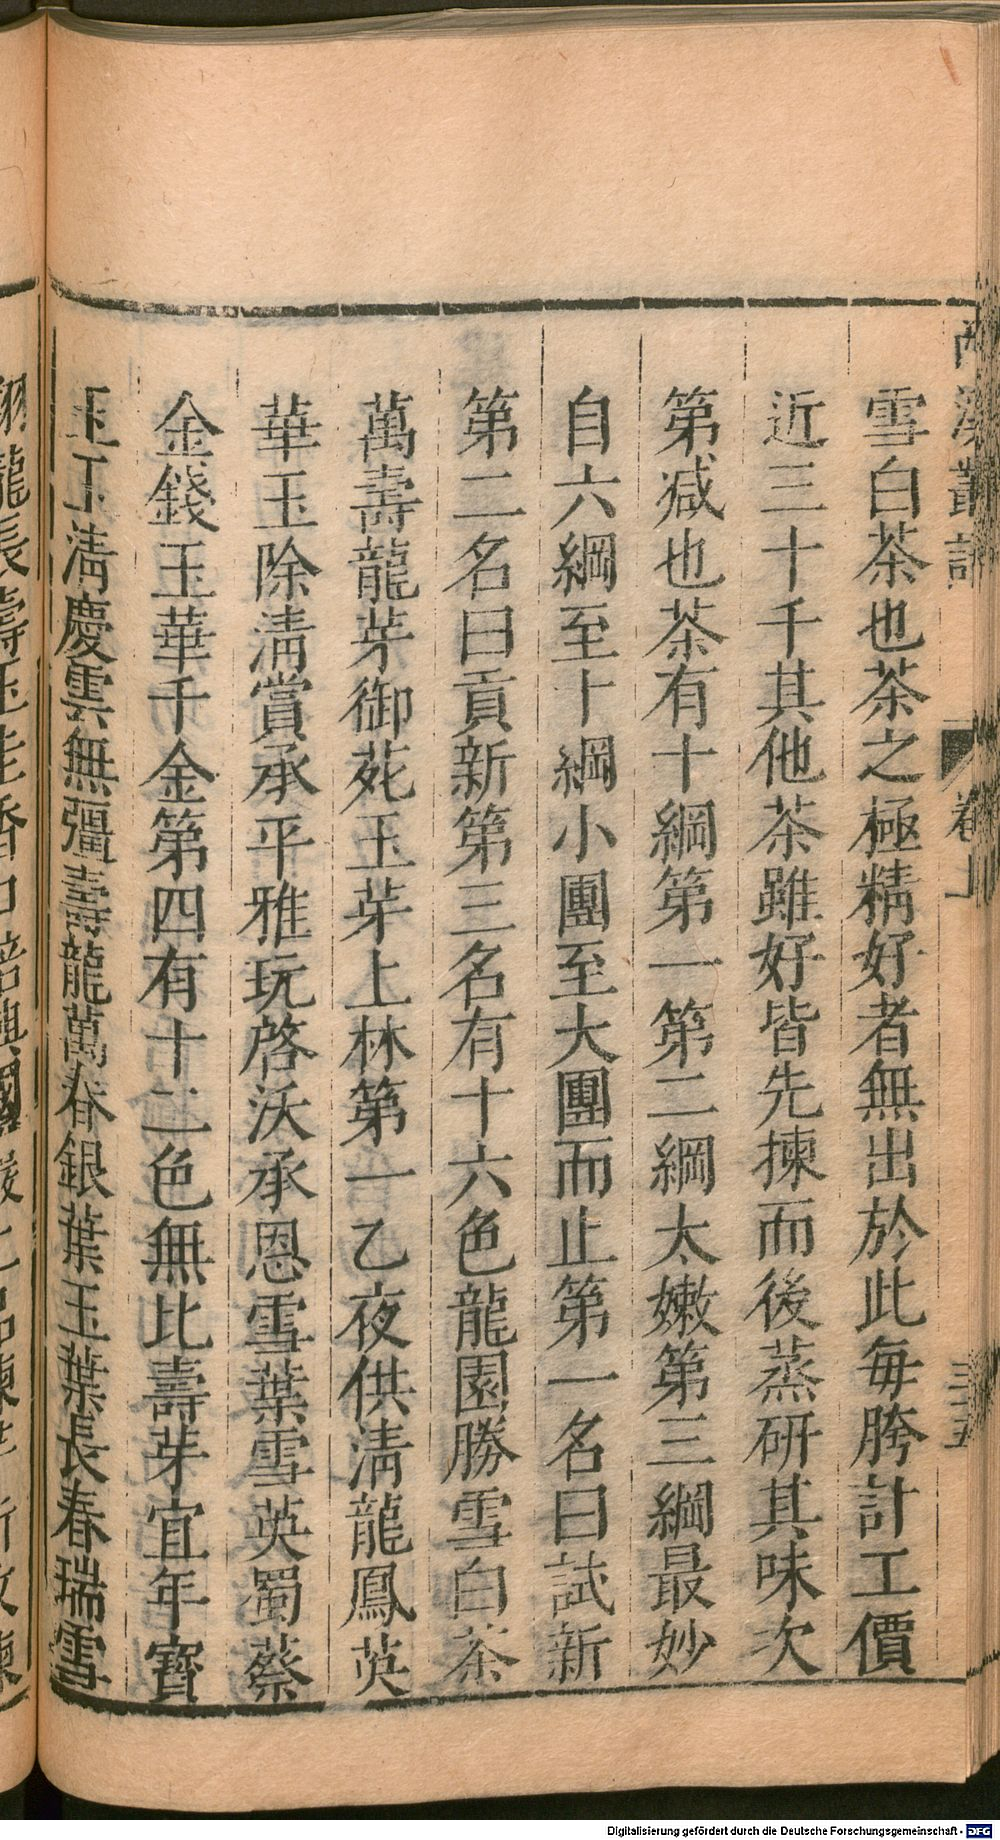 雪白茶也茶之極精好者無出於此每胯計工價
近三十千其他茶雖好皆先揀而後蒸研其味次
第減也茶有十綱第一第二綱太嫩第三綱最妙
自六綱至十綱小團至大團而止第一名曰試新
第二名曰貢新第三名有十六色龍園勝雪白茶
萬壽龍芽御苑玉芽上林第一乙夜供清龍鳳英
華玉除清賞承平雅玩啓沃承恩雪葉雪英蜀葵
金錢玉華千金第四有十二色無比壽芽宜年寶
玉玉清慶雲無彊壽龍萬春銀葉玉葉長春瑞雪
溪叢
卷上
三五
Digitalisierung gefördert durch die Deutsche Forschungsgemeinschaft - DFG